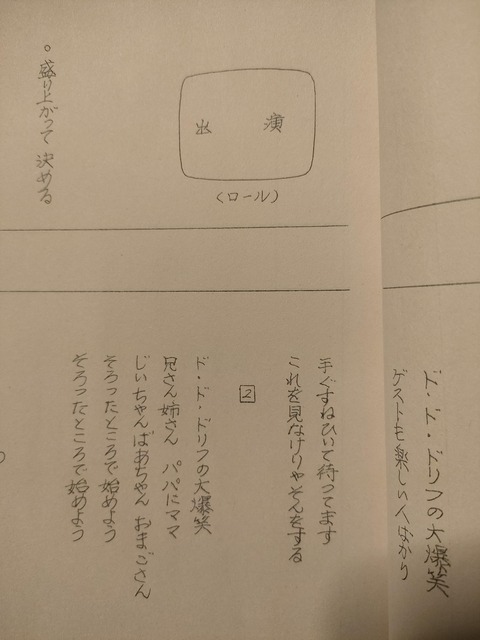 ド・ド・ドリフの大爆笑
ゲストも楽しい人ばかり
手ぐすねひいて待ってます
これを見なけりゃそんをする
2
ド・ド・ドリフの大爆笑
兄さん姉さん パパにママ
じいちゃんばあちゃん おまごさん
そろったところで始めよう
そろったところで始めよう
出 演
(ロール)
○盛り上がって 決める